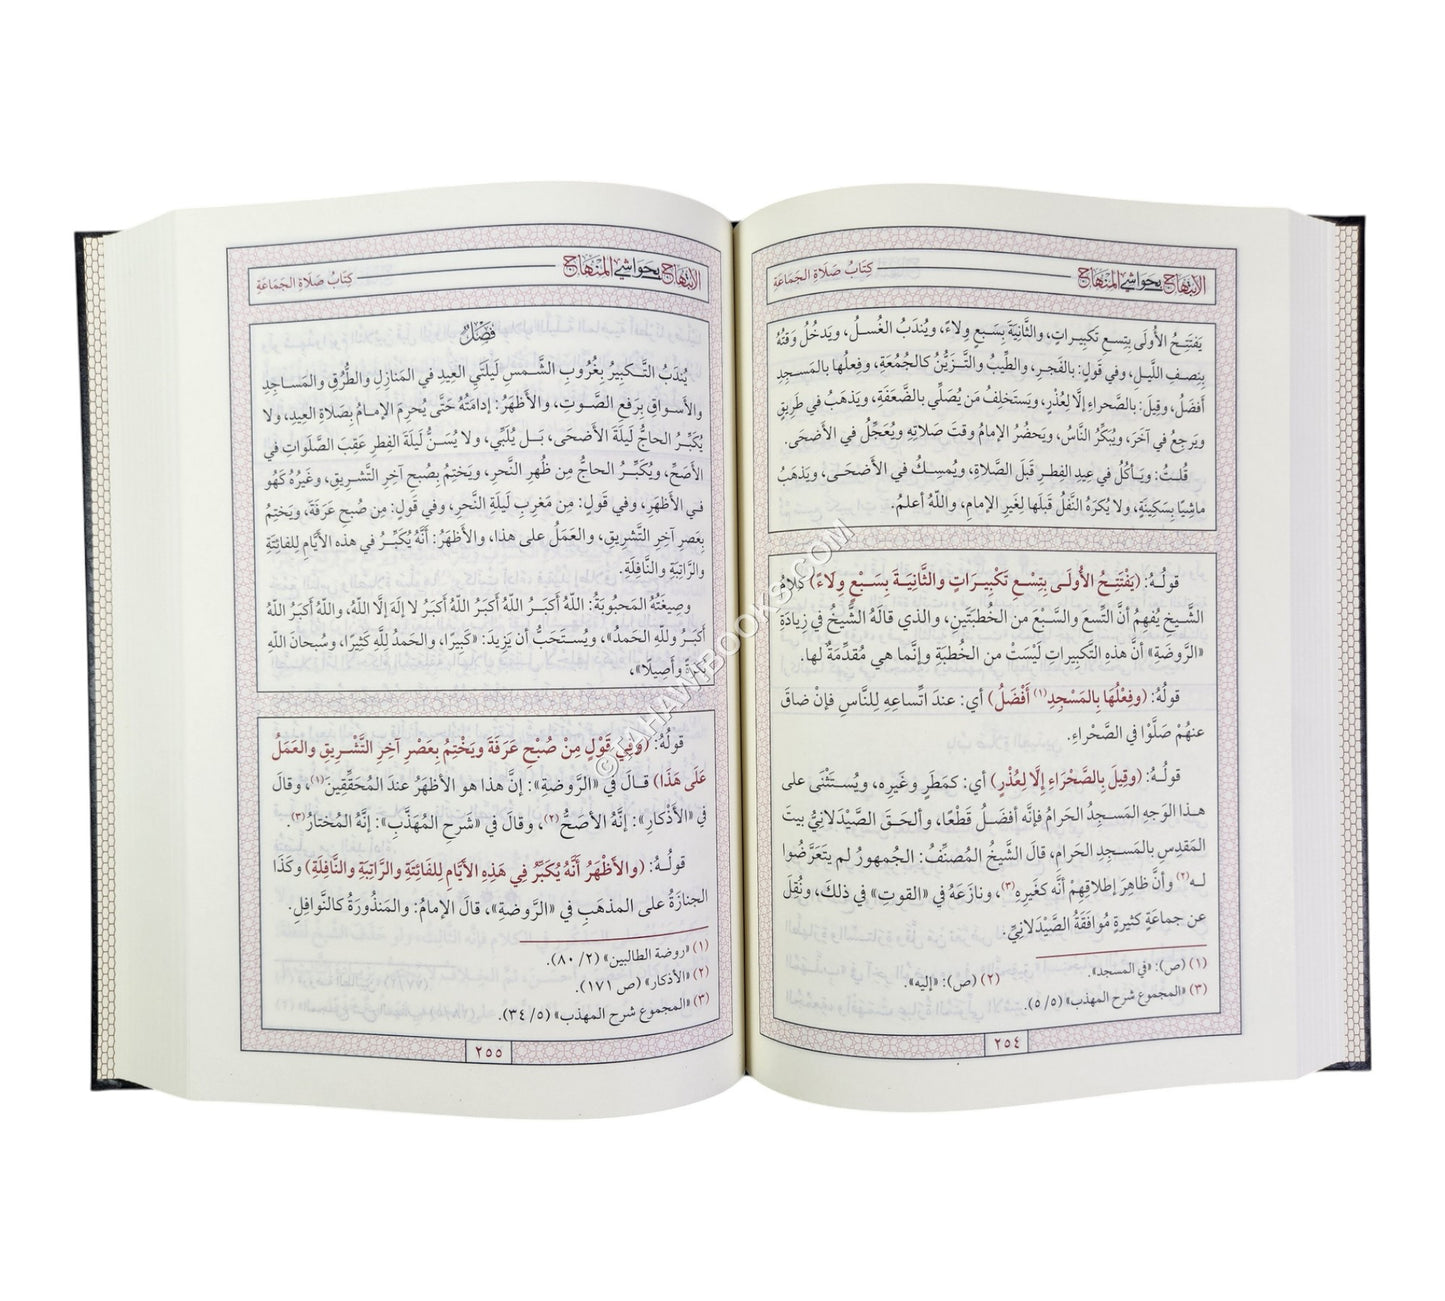 الابتهاج بحواشي المنهاج
كِتَابُ صَلَاةِ الجَمَاعَةِ
يَفتَتِحُ الأُولَى بِتِسعِ تَكبِيـراتٍ، والثَّانِيَةَ بِسَبعٍ وِلاءً، ويُندَبُ الغُسـلُ، ويَدخُلُ وَقتُهُ
بِنِصفِ اللَّيـلِ، وفي قَولٍ: بالفَجرِ، والطِّيبُ والتَّـزَيُّنُ كالجُمُعَةِ، وفِعلُها بالمَسـجِدِ
أَفضَلُ، وقِيلَ: بالصَّحراءِ إلَّا لِعُذْرٍ، ويَستَخلِفُ مَن يُصَلِّي بالضَّعَفَةِ، ويَذهَبُ في طَرِيقٍ
ويَرجِعُ في آخَرَ، ويُبَكِّرُ النَّاسُ، ويَحضُرُ الإمامُ وقتَ صَلاتِهِ ويُعَجِّلُ في الأضحَى.
قُلتُ: ويَـأكُلُ في عِيدِ الفِطرِ قَبلَ الصَّلاةِ، ويُمسِـكُ في الأضحَـى، ويَذهَبُ
ماشِيًا بِسَكِينَةٍ، ولا يُكرَهُ النَّفلُ قَبلَها لِغَيرِ الإمامِ، واللَّهُ أعلمُ.
قولُـهُ: (يَفْتَتِـحُ الأُولَـى بِتِسْـعِ تَكْبِيـرَاتٍ والثَّانِيَـةَ بِسَـبْعٍ وِلاءً) كلامُ
الشَّـيخِ يُفهِمُ أنَّ التِّسعَ والسَّبْعَ من الخُطبَتَينِ، والذي قالَهُ الشَّيخُ في زِيادَةِ
«الرَّوضَةِ» أنَّ هذه التَّكبِيراتِ لَيْسَتْ من الخُطبَةِ وإنَّما هي مُقدِّمَةٌ لها.
قولُهُ: (وفِعْلُهَا بِالمَسْجِدِ(١) أَفْضَلُ) أي: عندَ اتِّساعِهِ لِلنَّاسِ فإنْ ضاقَ
عنهُمْ صَلَّوْا في الصَّحْراءِ.
قولُـهُ: (وقِيلَ بِالصَّحْرَاءِ إِلَّا لِعُذْرٍ) أي: كمَطَرٍ وغَيرِه، ويُسـتَثْنَى على
هـذا الوَجهِ المَسـجِدُ الحَرامُ فإنَّه أفضَـلُ قَطْعًا، وألحَقَ الصَّيْدَلانِيُّ بيتَ
المَقدِسِ بالمَسـجِدِ الحَرامِ، قالَ الشَّيخُ المُصنِّفُ: الجُمهورُ لم يتَعَرَّضُوا
لـه(٢) وأنَّ ظاهِرَ إطلاقِهِمْ أنَّه كغَيرِهِ(٣)، ونازَعَهُ في «القوتِ» في ذلكَ، ونُقِلَ
عن جماعَةٍ كثيرةٍ مُوافَقَةُ الصَّيْدَلانِيِّ.
(١) (ص): «في المسجد».
(٢) (ص): «إليه».
(٣) «المجموع شرح المهذب» (٥/٥).
٢٥٤
الابتهاج بحواشي المنهاج
كِتَابُ صَلَاةِ الجَمَاعَةِ
فَصْلٌ
يُندَبُ التَّـكبِيرُ بِغُرُوبِ الشَّـمسِ لَيلَتَي العِيدِ في المَنازِلِ والطُّرُقِ والمَسـاجِدِ
والأسـواقِ بِرَفعِ الصَّـوتِ، والأظهَرُ: إدامَتُهُ حَتَّى يُحرِمَ الإمامُ بِصَلاةِ العِيدِ، ولا
يُكَبِّـرُ الحاجُّ لَيلَةَ الأضحَى، بَـل يُلَبِّي، ولا يُسَـنُّ لَيلَةَ الفِطرِ عَقِبَ الصَّلَواتِ في
الأصَحِّ، ويُكَبِّـرُ الحاجُّ مِن ظُهرِ النَّحرِ، ويَختِمُ بِصُبحِ آخِرِ التَّشـرِيقِ، وغَيرُهُ كَهُو
في الأظهَرِ، وفي قَولٍ: مِن مَغرِبِ لَيلَةِ النَّحرِ، وفي قَولٍ: مِن صُبحِ عَرَفَةَ، ويَختِمُ
بِعَصرِ آخِرِ التَّشرِيقِ، والعَمَلُ على هذا، والأظهَرُ: أَنَّهُ يُكَبِّـرُ في هذه الأيَّامِ لِلفائِتَةِ
والرَّاتِبَةِ والنَّافِلَةِ.
وصِيغَتُهُ المَحبُوبَةُ: اللَّهُ أَكبَـرُ اللَّهُ أَكبَرُ اللَّهُ أَكبَرُ لا إلَهَ إلَّا اللَّهُ، واللَّهُ أَكبَرُ اللَّهُ
أَكبَـرُ وللَّهِ الحَمدُ»، ويُسـتَحَبُّ أن يَزِيدَ: «كَبِيرًا، والحَمدُ لِلَّهِ كَثِيرًا، وسُبحانَ اللَّهِ
بُكرَةً وأَصِيلًا»،
قولُهُ: (وَفِي قَوْلٍ مِنْ صُبْحِ عَرَفَةَ وَيَخْتِمُ بِعَصْرِ آخِرِ التَّشْـرِيقِ والعَمَلُ
عَلَى هَذَا) قـالَ في «الرَّوضةِ»: إنَّ هذا هو الأظهَرُ عندَ المُحَقِّقِينَ(١)، وقالَ
في «الأَذْكارِ»: إنَّهُ الأصَحُّ(٢)، وقالَ في «شَرحِ المُهَذَّبِ»: إنَّهُ المُختارُ(٣).
قولُـهُ: (والأَظْهَرُ أَنَّهُ يُكَبِّرُ فِي هَذِهِ الأَيَّامِ لِلفَائِتَةِ والرَّاتِبَةِ والنَّافِلَةِ) وكَذَا
الجنازَةُ على المذهَبِ في «الرَّوضةِ»، قالَ الإمامُ: والمَنذُورَةُ كالنَّوافِلِ.
(١) «روضة الطالبين» (٢/ ٨٠).
(٢) «الأذكار» (ص ١٧١).
(٣) «المجموع شرح المهذب» (٥/ ٣٤).
٢٥٥
© TAHAWIBOOKS.COM